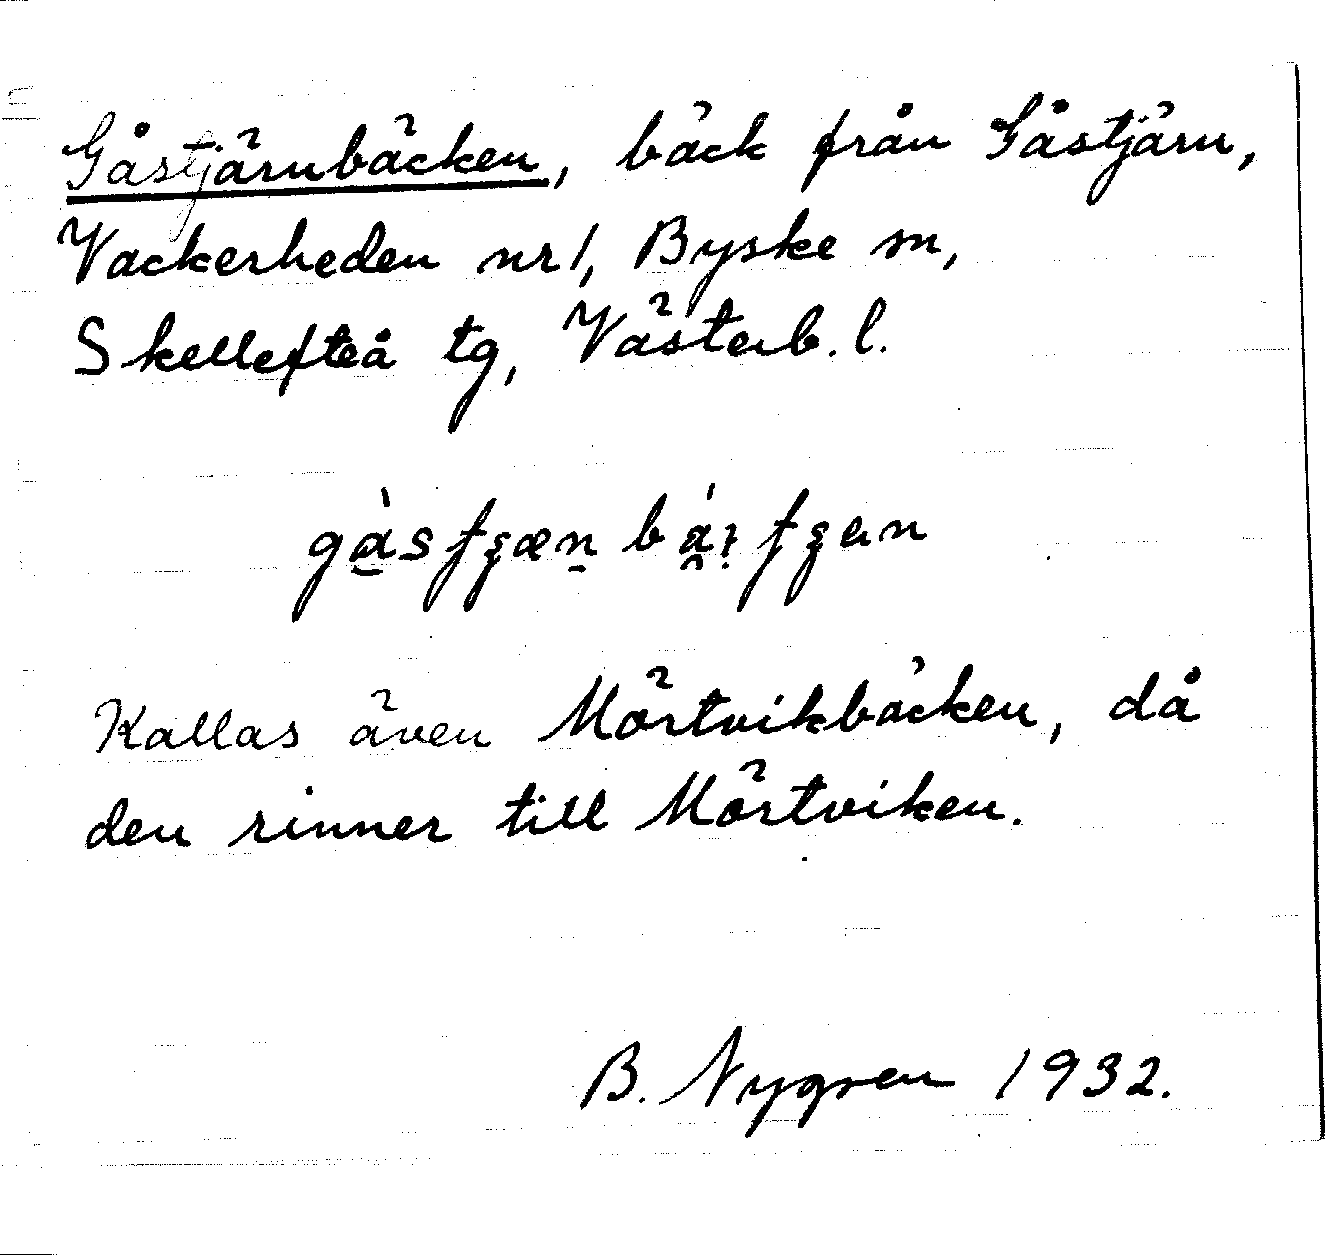 Gåstjärnbäcken, bäck från Gåstjärn,
Vackerheden nr 1, Byske sn,
Skellefteå tg, Västerb. l.
Kallas även Mörtvikbäcken, då
den rinner till Mörtviken.
B. Nygren 1932.